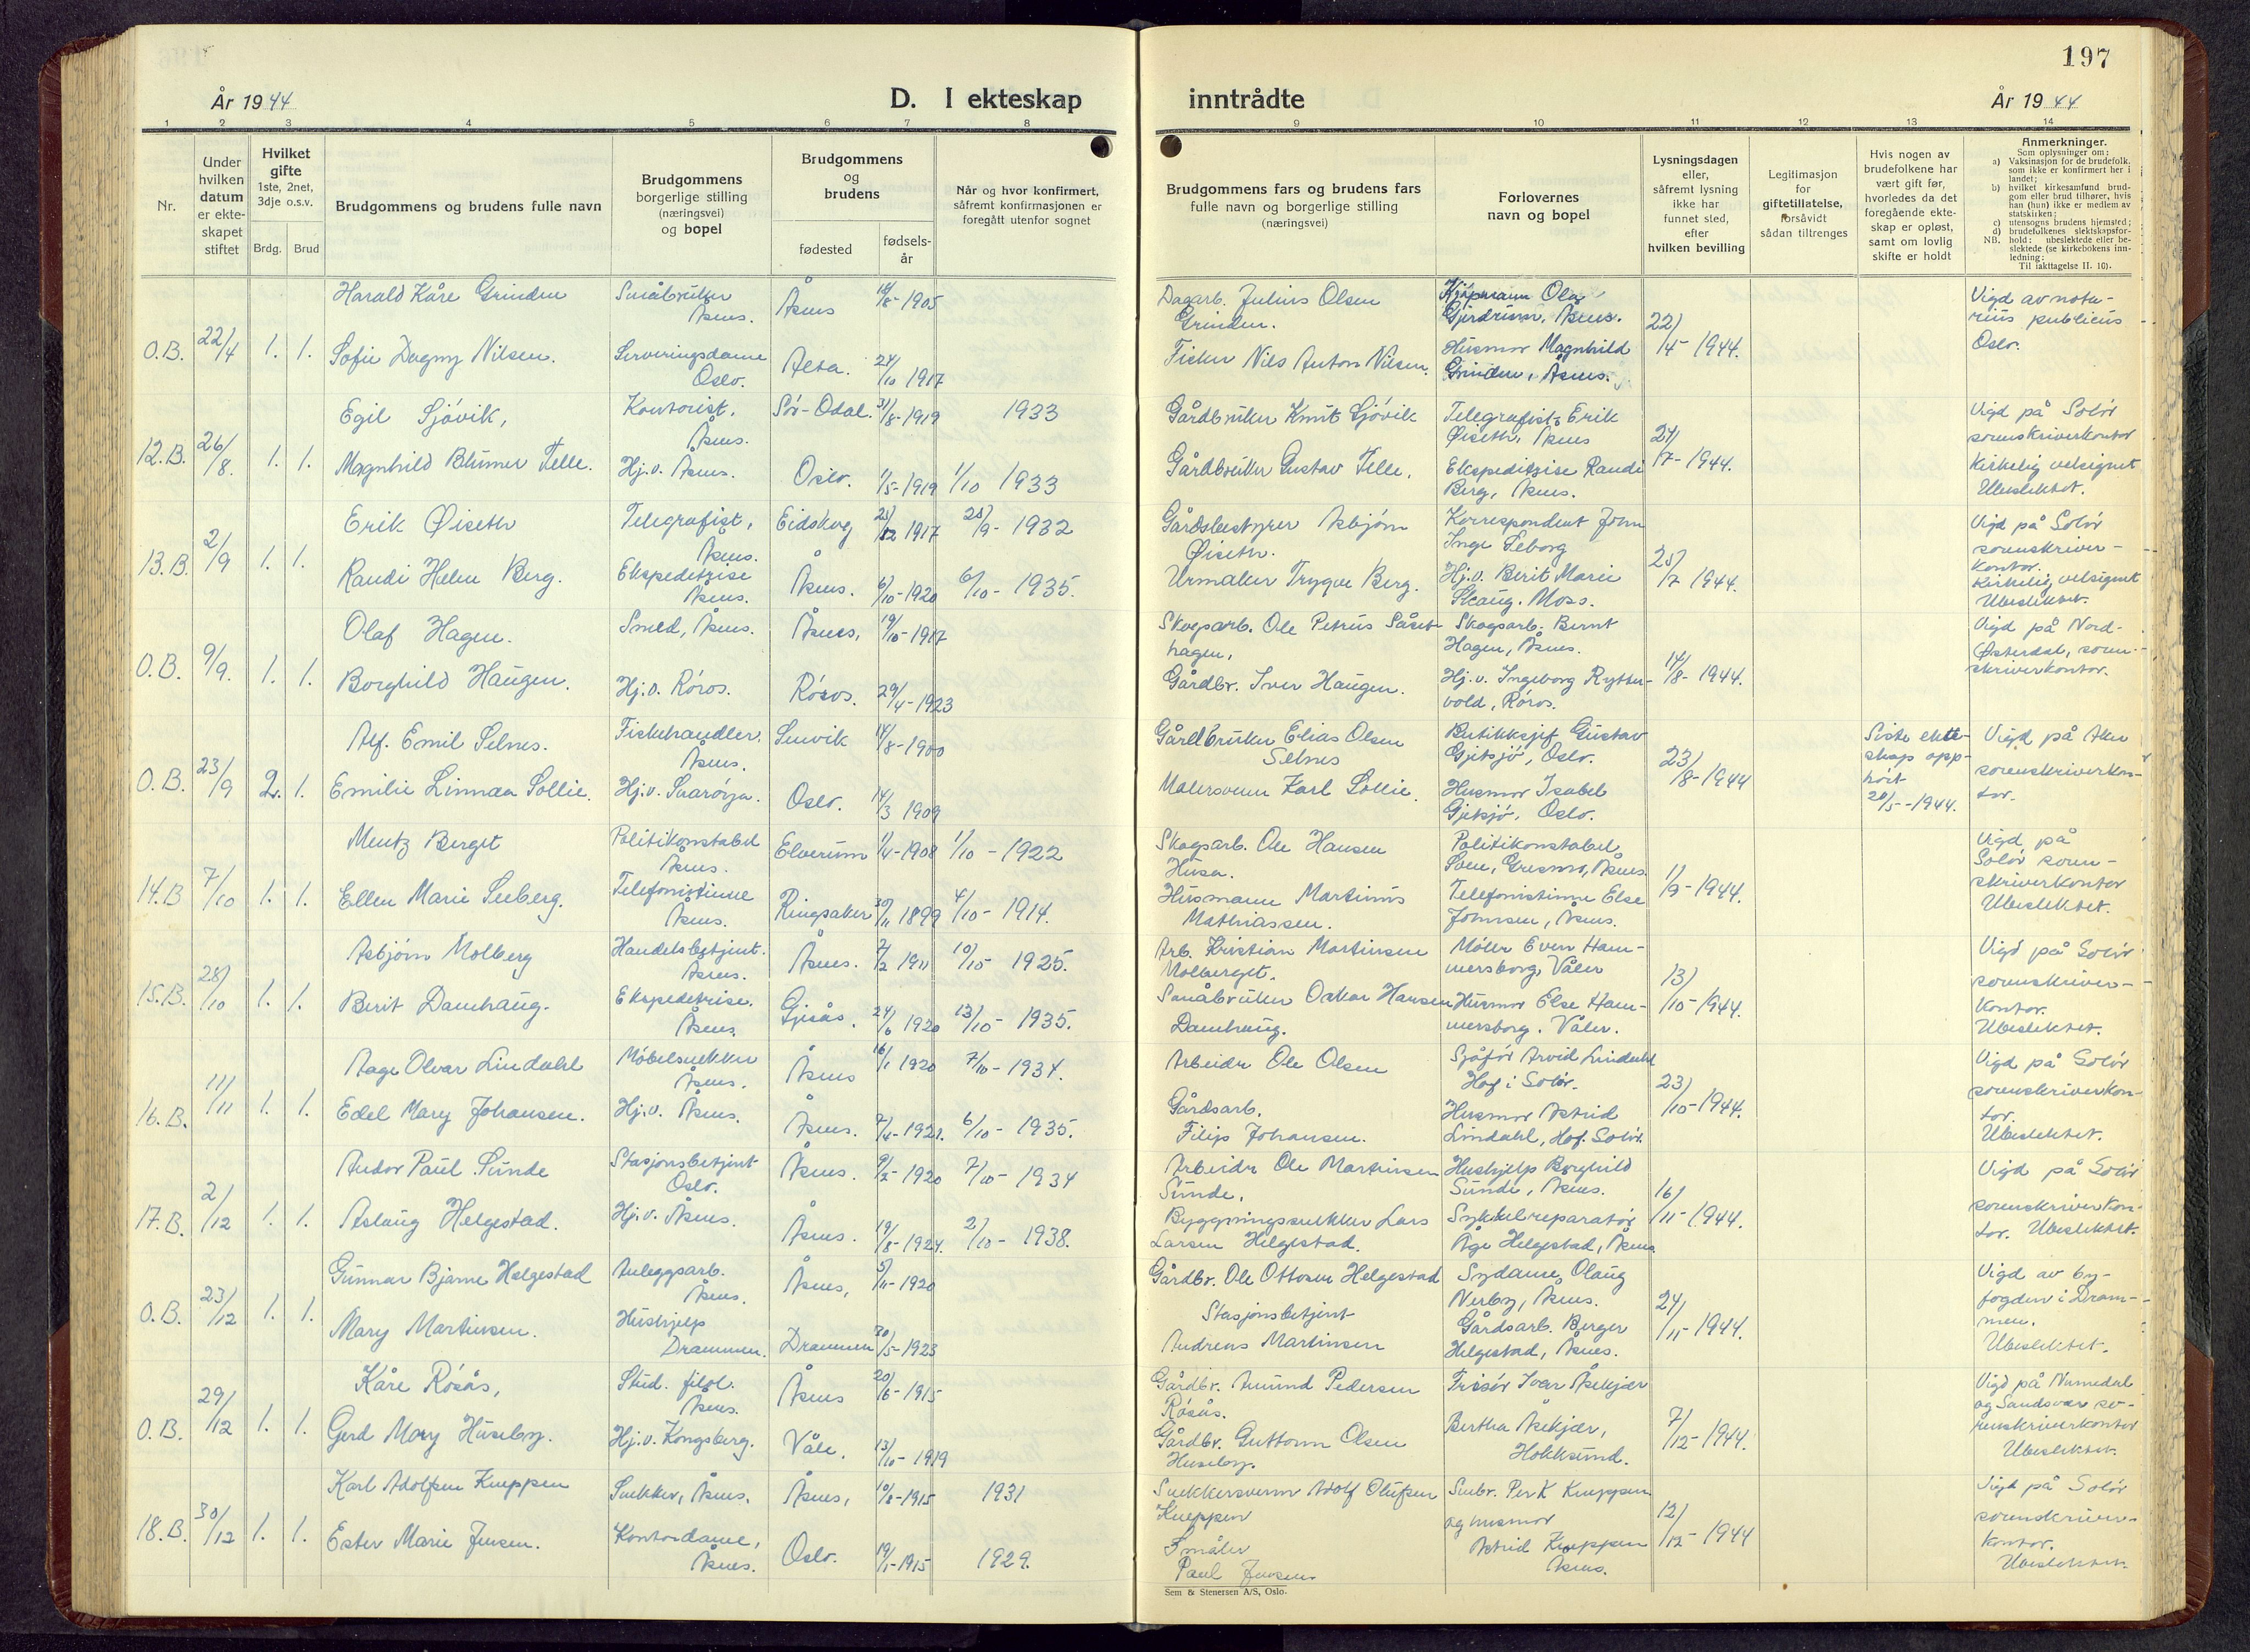 197
År 1944
D. I ekteskap inntrådte
År 1944
1 2 3 4 5 6 7 8 9 10 11 12 13 14
Nr.
Under
hvilken
datum
er ekte-
skapet
stiftet
Hvilket
gifte
1ste, 2net,
3dje o.s.v.
Brdg. Brud
Brudgommens og brudens fulle navn
Brudgommens
borgerlige stilling
(næringsvei)
og bopel
Brudgommens
og
brudens
fødested
fødsels-
år
Når og hvor konfirmert,
såfremt konfirmasjonen er
foregått utenfor sognet
Brudgommens fars og brudens fars
fulle navn og borgerlige stilling
(næringsvei)
Forlovernes
navn og bopel
Lysningsdagen
eller,
såfremt lysning
ikke har
funnet sted,
efter
hvilken bevilling
Legitimasjon
for
giftetillatelse,
forsåvidt
sådan tiltrenges
Hvis nogen av
brudefolkene har
vært gift før,
hvorledes da det
foregående ekte-
skap er opløst,
samt om lovlig
skifte er holdt
Anmerkninger.
Som oplysninger om:
a) Vaksinasjon for de brudefolk,
som ikke er konfirmert her i
landet;
b) hvilket kirkesamfund brud-
gom eller brud tilhører, hvis
han (hun) ikke er medlem av
statskirken;
c) utensogns brudens hjemsted;
d) brudefolkenes slektskapsfor-
NB. hold: ubeslektede eller be-
slektede (se kirkebokens inn-
ledning:
Til iakttagelse II. 10).
O.B. 22/4 1. 1.
Harald Kåre Grinden
Småbruker
Åsnes.
Åsnes
1905
Sofie Dagny Nilsen.
Serveringsdame
Oslo.
Alta.
24/10 1917
Dagarb. Julius Olsen
Grinden.
Fisker Nils Anton Nilsen.
Kjøpmann Olaf
Gjerdrum, Åsnes.
Husmor Magnhild
Grinden, Åsnes.
22/4- 1944.
Vigd av nota-
rius publicus
Oslo.
12.B. 26/8. 1. 1.
Egil Sjøvik,
Kontorist,
Åsnes.
Sør-Odal.
31/8-1919
1933
Magnhild Blumer Telle.
Hj.v. Åsnes.
Oslo.
1/5-1919
1/10 1933
Gårdbruker Knut Sjøvik
Gårdbruker Gustav Telle.
Telegrafist Erik
Øiseth, Åsnes
Ekspeditrise Randi
Berg, Åsnes.
24/7-1944.
Vigd på Solør
sorenskriverkontor
Kirkelig velsignet
Ubeslektet.
13.B. 2/9 1. 1.
Erik Øiseth
Telegrafist,
Åsnes.
Eidskog
28/12 1917
25/9- 1932
Randi Helene Berg.
Ekspeditrise
Åsnes.
Åsnes.
6/10-1920
6/10- 1935.
Gårdsbestyrer Asbjørn
Øiseth.
Urmaker Trygve Berg.
Korrespondent John
Inge Seborg
Hj.v. Berit Marie
Skaug. Moss.
25/7 1944.
Vigd på Solør
sorenskriver-
kontor.
Kirkelig velsignet
Ubeslektet.
O.B. 9/9. 1. 1.
Olaf Hagen.
Smed, Åsnes.
Åsnes,
19/10-1917
Borghild Haugen.
Hj.v. Røros.
Røros.
29/4-1923
Skogsarb. Ole Petrus Såset-
hagen,
Gårdbr. Iver Haugen.
Skogsarb. Bernt
Hagen, Åsnes.
Hj.v. Ingeborg Rytter-
vold, Røros.
14/8-1944.
Vigd på Nord-
Østerdal, soren-
skriverkontor.
O.B. 23/9 2. 1.
Alf. Emil Selnes.
Fiskehandler.
Åsnes.
14/8-1900
Emilie Linnæa Sollie.
Hj.v.
Oslo.
14/3 1909
Gårdbruker Elias Olsen
Selnes
Malersvenn Karl Sollie.
Butikksjef Gustav
Gjetsjø, Oslo.
Husmor Isabel
Gjetsjø, Oslo.
23/8-1944
Siste ekte-
skap opp-
hørt
20/5-1944.
Vigd på Aker
sorenskriverkon-
tor.
14.B 7/10 1. 1.
Mentz Berget
Politikonstabel
Åsnes.
Elverum
1/4-1908
1/10 - 1922
Ellen Marie Seeberg.
Telefonistinne
Åsnes.
Ringsaker
30/11 1899
4/10- 1914.
Skogsarb. Ole Hansen
Husa.
Husmann Martinius
Mathiassen.
Politikonstabel
Åsnes.
Telefonistinne Else
Johnsen, Åsnes.
1/9-1944.
Vigd på
Solør soren-
skriverkontor
Ubeslektet.
15.B. 28/10 1. 1.
Asbjørn Molberg
Handelsbetjent.
Åsnes.
Åsnes.
7/2 1911
10/10 1925.
Berit Damhaug.
Ekspeditrise.
Åsnes.
Gjesås.
24/6 1920
13/10- 1935.
Arb. Kristian Martinsen
Molberget.
Småbruker Oskar Hansen
Damhaug.
Møller Even Ham-
mersborg, Våler
Husmor Else Ham-
mersborg. Våler.
13/10-1944.
Vigd på Solør
sorenskriver-
kontor.
Ubeslektet.
16.B. 11/11 1. 1.
Aage Olvar Lindahl
Møbelsnekker
Åsnes.
Åsnes
16/1 1920
7/10-1934.
Edel Mary Johansen.
Hj.v. Åsnes.
Åsnes.
7/4-1921.
6/10-1935.
Arbeider Ole Olsen
Gårdsarb.
Filip Johansen.
Sjåfør Arvid Lindahl
Hof i Solør.
Husmor Astrid
Lindahl, Hof. Solør.
23/10-1944.
Vigd på Solør
sorenskriverkon-
tor.
Ubeslektet.
17.B. 2/12 1. 1.
Andor Paul Sunde
Stasjonsbetjent
Oslo.
Åsnes.
1920
7/10-1934
Aslaug Helgestad.
Hj.v. Åsnes.
Åsnes.
19/8-1924.
2/10- 1938.
Arbeider Ole Martinsen
Sunde,
Byggningssnekker Lars
Larsen Helgestad.
Hushjelp Borghild
Sunde, Åsnes.
Sykkelreparatør
Åge Helgestad, Åsnes
16/11-1944.
Vigd på Solør
sorenskriverkon-
tor. Ubeslektet.
O.B. 23/12 1. 1.
Gunnar Bjarne Helgestad
Anleggsarb.
Åsnes.
Åsnes,
5/11-1920
Mary Martinsen.
Hushjelp
Drammen.
Drammen
30/5-1923
Gårdbr. Ole Ottosen Helgestad
Stasjonsbetjent
Andreas Martinsen
Sydame, Olaug
Nerby, Åsnes.
Gårdsarb. Berger
Helgestad, Åsnes.
24/11-1944.
Vigd av by-
fogden i Dram-
men.
Ubeslektet.
O.B. 29/12 1. 1.
Kåre Røsås,
Stud. filol.
Åsnes.
Åsnes
20/6-1915
Gerd Mary Huseby.
Hj.v. Kongsberg.
Våle.
13/10-1919
Gårdbr. Amund Pedersen
Røsås.
Gårdbr. Guttorm Olsen
Huseby.
Frisør Ivar Askekjær
Bertha Askekjær,
Hokksund.
7/12-1944.
Vigd på Numedal
og Sandsvær so-
renskriverkontor
Ubeslektet.
18.B. 30/12 1. 1.
Karl Adolfsen Kneppen
Snekker, Åsnes.
Åsnes,
10/8-1915
1931
Ester Marie Jensen.
Kontordame,
Åsnes.
Oslo.
19/1-1915
1929.
Snekkersvenn Adolf Olufsen
Kneppen
Småbr
Paul Jensen.
Småbr. Per K Kneppen
og husmor
Astrid Kneppen
Åsnes.
12/12-1944
Vigd på Solør
sorenskriver-
kontor.
Ubeslektet.
Sem & Stenersen A/S, Oslo.